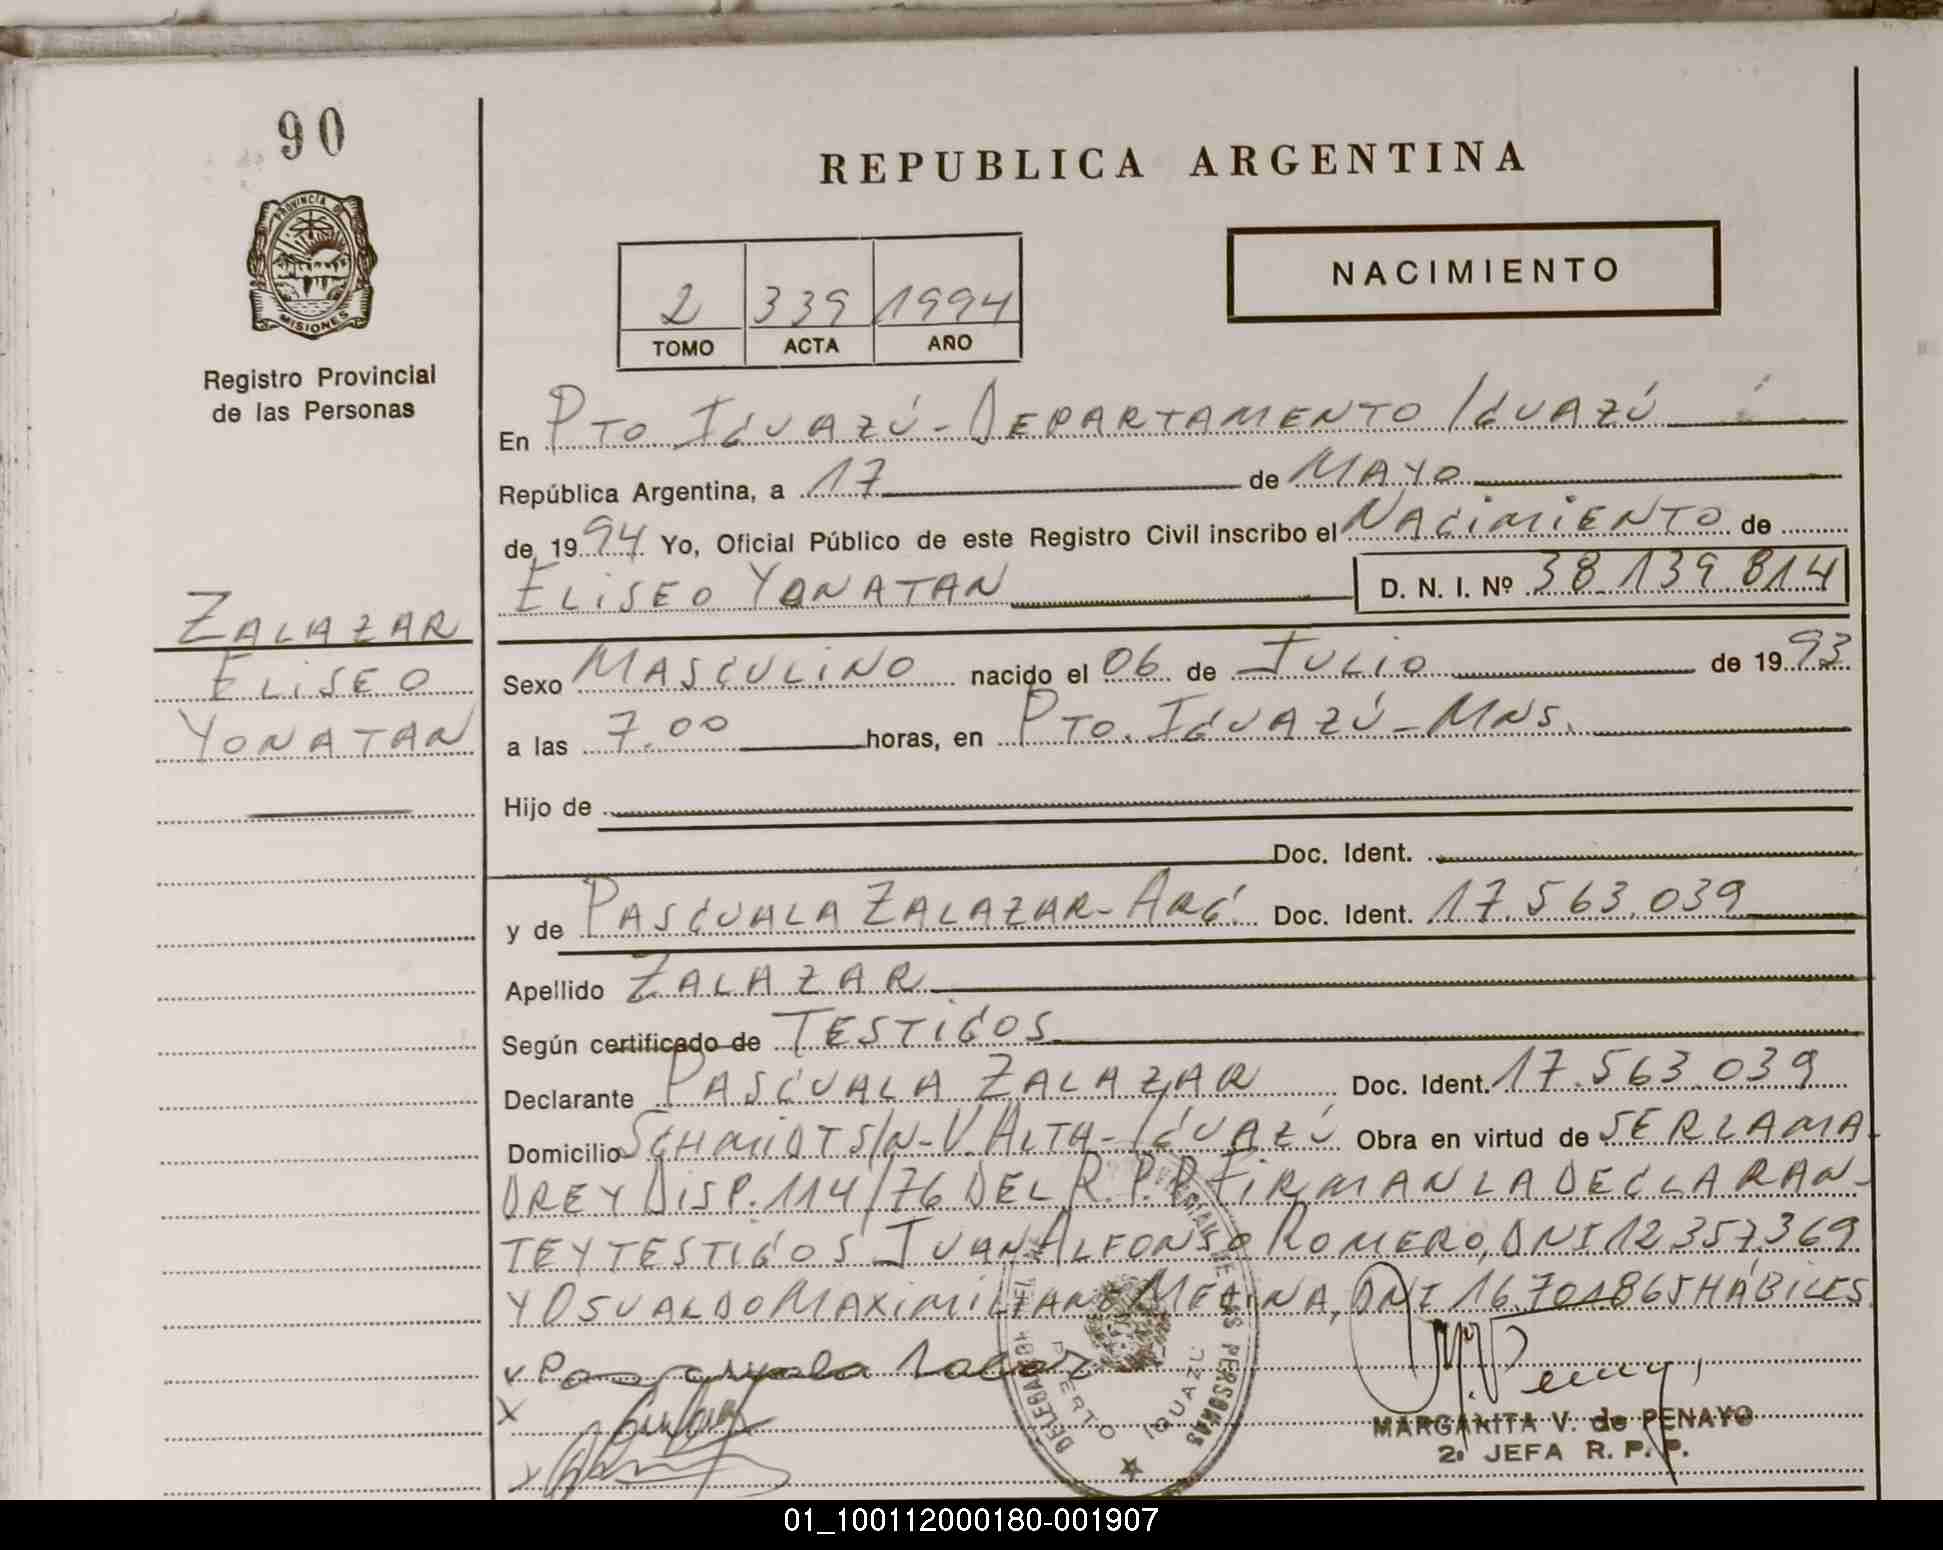 90
PROVINCIA DE
MISIONES
Registro Provincial
de las Personas
ZALAZAR
ELISEO
YONATAN
REPUBLICA ARGENTINA
2 339 1994
TOMO ACTA AÑO
NACIMIENTO
En PTO IGUAZÚ - DEPARTAMENTO IGUAZÚ
República Argentina, a 17 de MAYO
de 1994 Yo, Oficial Público de este Registro Civil inscribo el NACIMIENTO de
ELISEO YONATAN D. N. I. Nº 38.139.814
Sexo MASCULINO nacido el 06 de JULIO de 1993
a las 7.00 horas, en PTO. IGUAZÚ - MNS.
Hijo de
Doc. Ident.
y de PASCUALA ZALAZAR - ARG. Doc. Ident. 17.563.039
Apellido ZALAZAR
Según certificado de TESTIGOS
Declarante PASCUALA ZALAZAR Doc. Ident. 17.563.039
Domicilio SCHMIDT S/N - V. ALTA - IGUAZÚ Obra en virtud de SER LA MA
DRE Y DISP. 114/76 DEL R.P.P. FIRMAN LA DECLARAN-
TE Y TESTIGOS JUAN ALFONSO ROMERO, DNI 12.357.369
Y OSVALDO MAXIMILIANO MEDINA, DNI 16.701865 HÁBILES
PUERTO IGUAZU
MARGARITA V. de PENAYO
2º JEFA R. P. P.
01_100112000180-001907